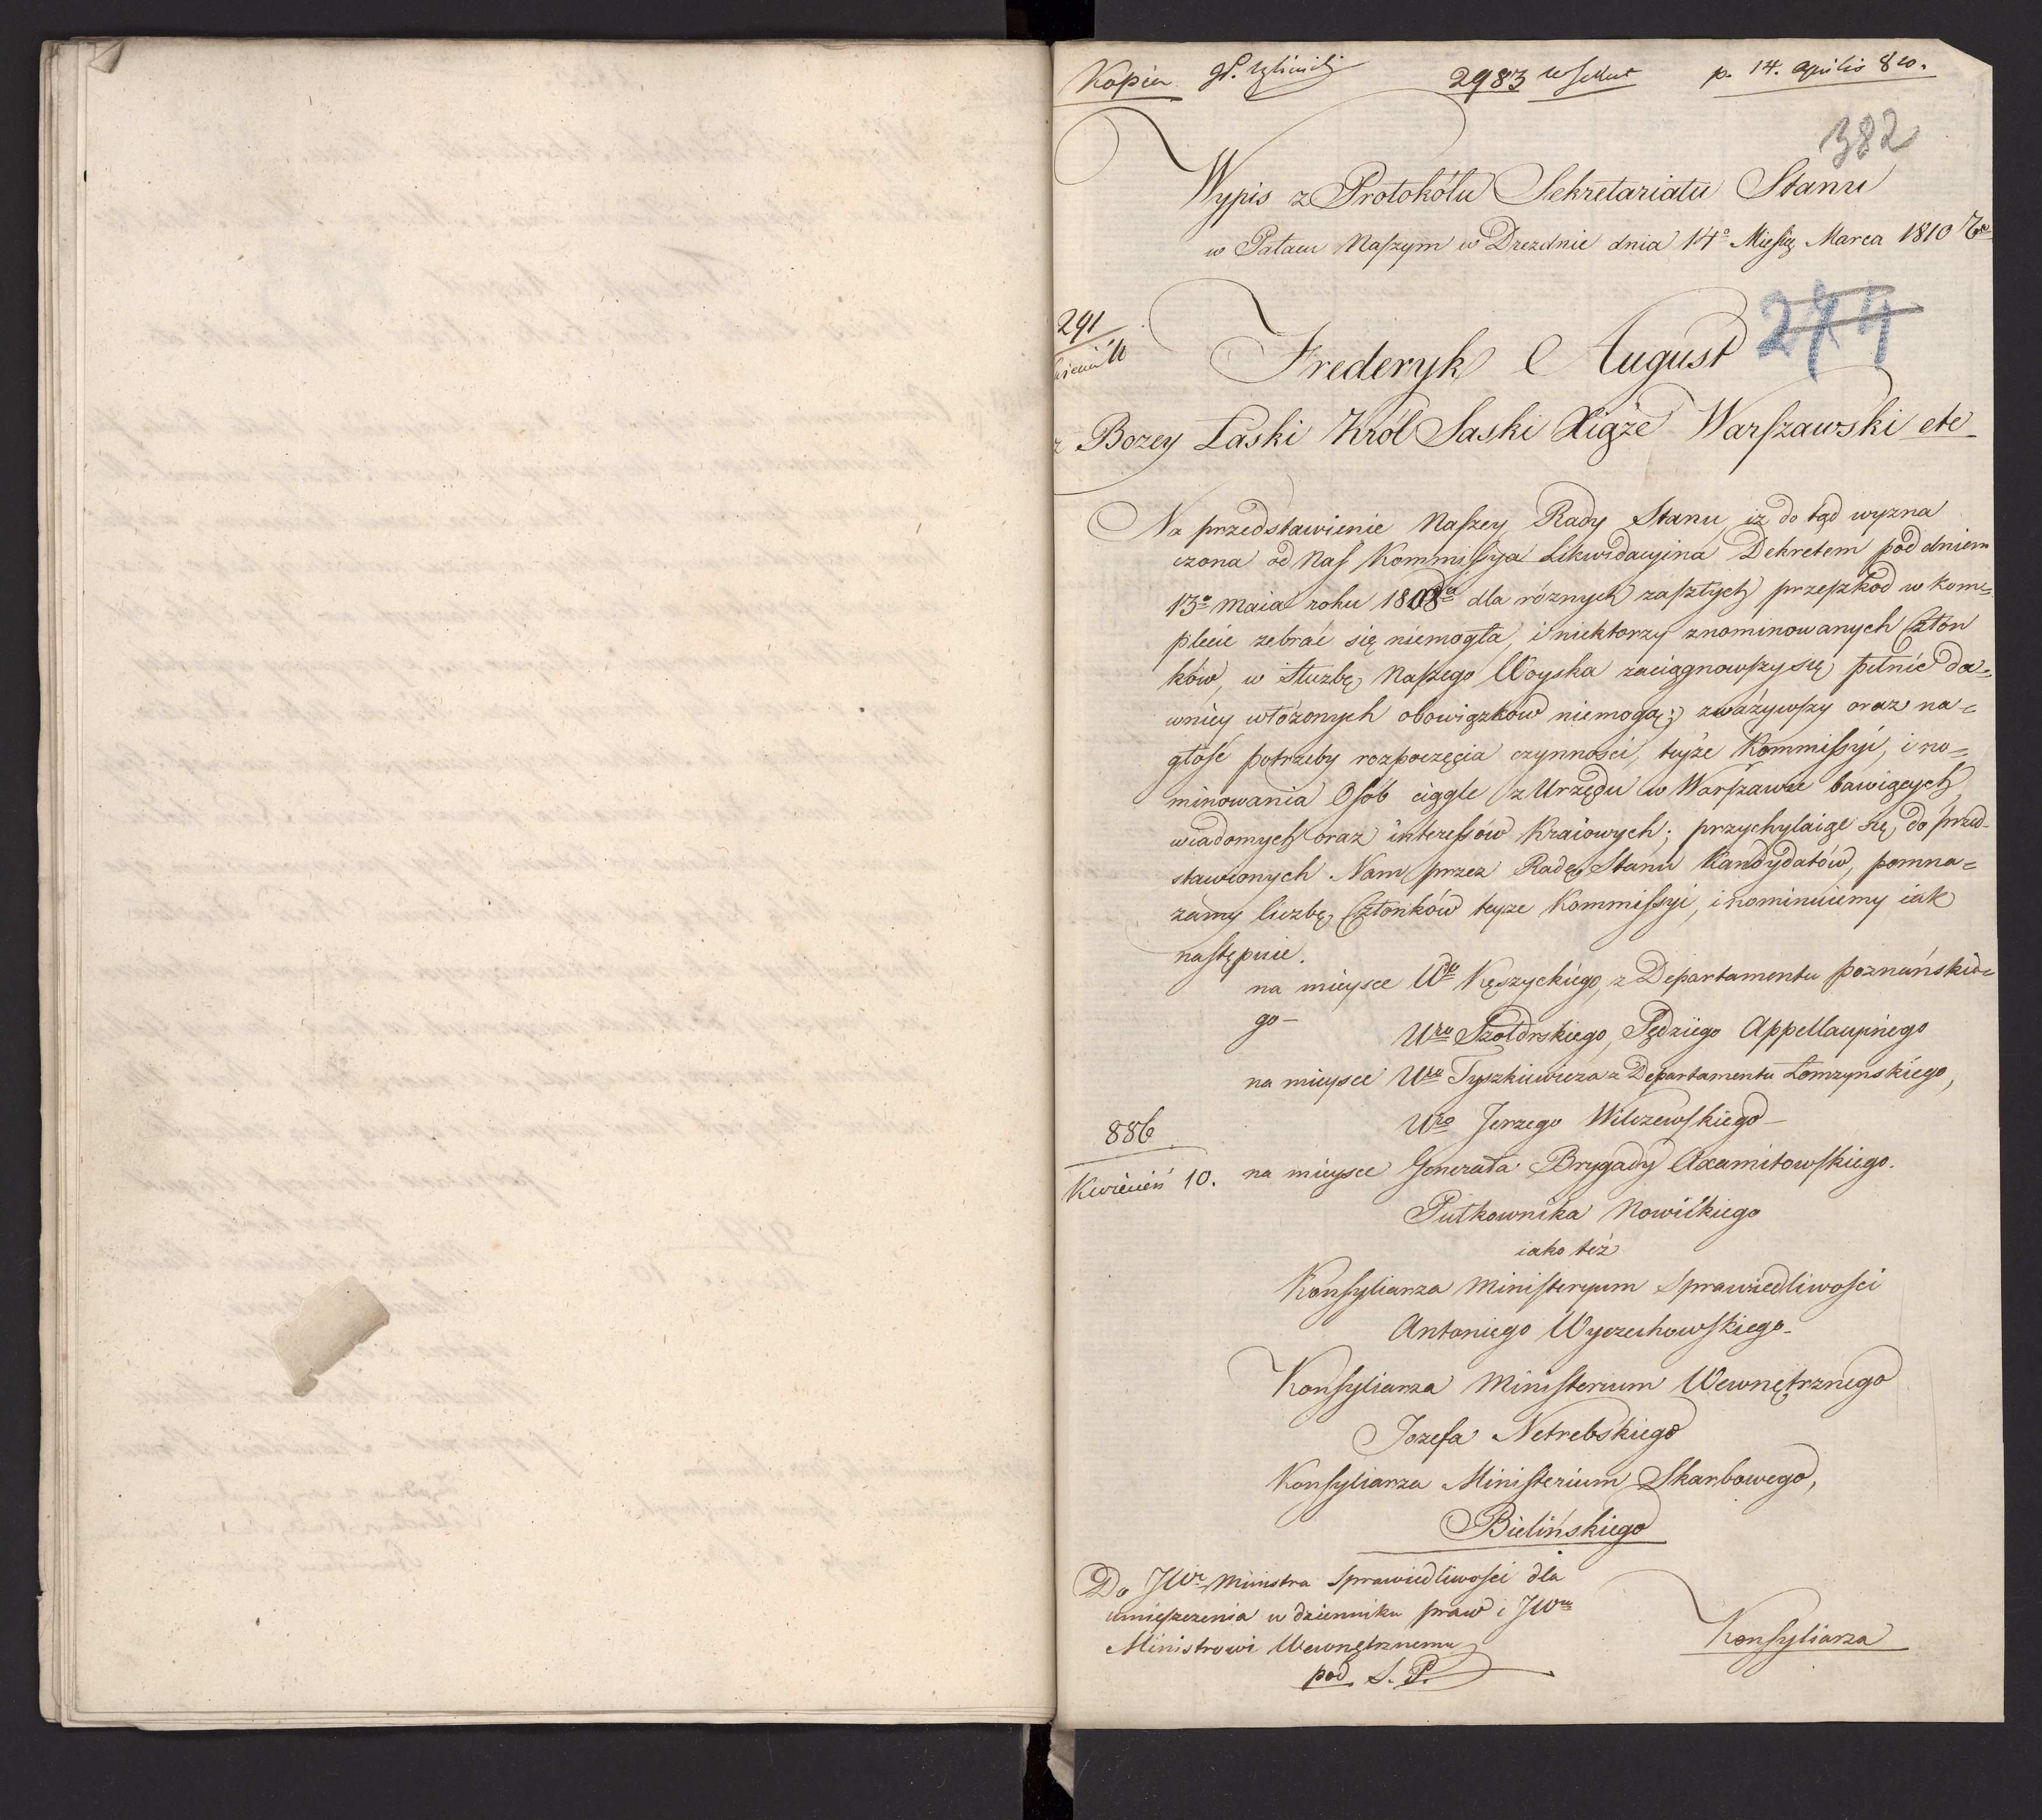 Kopia 2983 w Sekret p. 14. Aprilis 810.
382
Wypis z Protokółu Sekretariatu Stanu
w Pałacu Naszym w Dreznie dnia 14º Miesią Marca 1810 Ru
291
Kwiecień 11
274
Frederyk August
z Bozey Łaski Król Saski Xiąże Warszawski etc
Na przedstawienie Naszey Rady Stanu, iz do tąd wyzna
czona od Nas Kommissya Likwidacyina Dekretem pod dniem
13º Maia roku 1808º dla róznych zaszłych przeszkod w kom=
plecie zebrać się niemogła, i niektorzy z nominowanych Człon
ków, w Służbę Naszego Woyska zaciągnowszy się pełnić da=
wniey włożonych obowiązków niemogą; zważywszy oraz na=
głość potrzeby rozpoczęcia czynności, teyże Kommissyi, i no=
minowania Osób ciągle z Urzędu w Warszawie bawiących
wiadomych oraz interessów Kraiowych; przychylaiąc się do przed-
stawionych Nam przez Radę Stanu Kandydatów, pomna=
zamy liczbę Członków teyze Kommissyi, i nominuiemy iak
następuie.
na mieysce Uro Kęszyckiégo, z Departamentu poznańskie=
go —
Uro Szołdrskiego, Sędziego Appellacyinego
na mieysce Uro Tyszkiewicza z Departamentu Łomzynskiégo,
Uro Jerzego Wilczewskiego —
886
Kwiecień 10.
na mieysce Generała Brygady Axamitowskiego.
Pułkownika Nowickiego
iako też
Konsyliarza Ministeryum Sprawiedliwości
Antoniego Wyczechowskiego.
Konsyliarza Ministerium Wewnętrznego
Jozefa Netrebskiego
Konsyliarza Ministerium Skarbowego,
Bielińskiego
Do JWo Ministra Sprawiedliwości dla
umieszczenia w dzienniku praw i JWmu
Ministrowi Wewnętrznemu
pod. S. P.
Konsyliarza